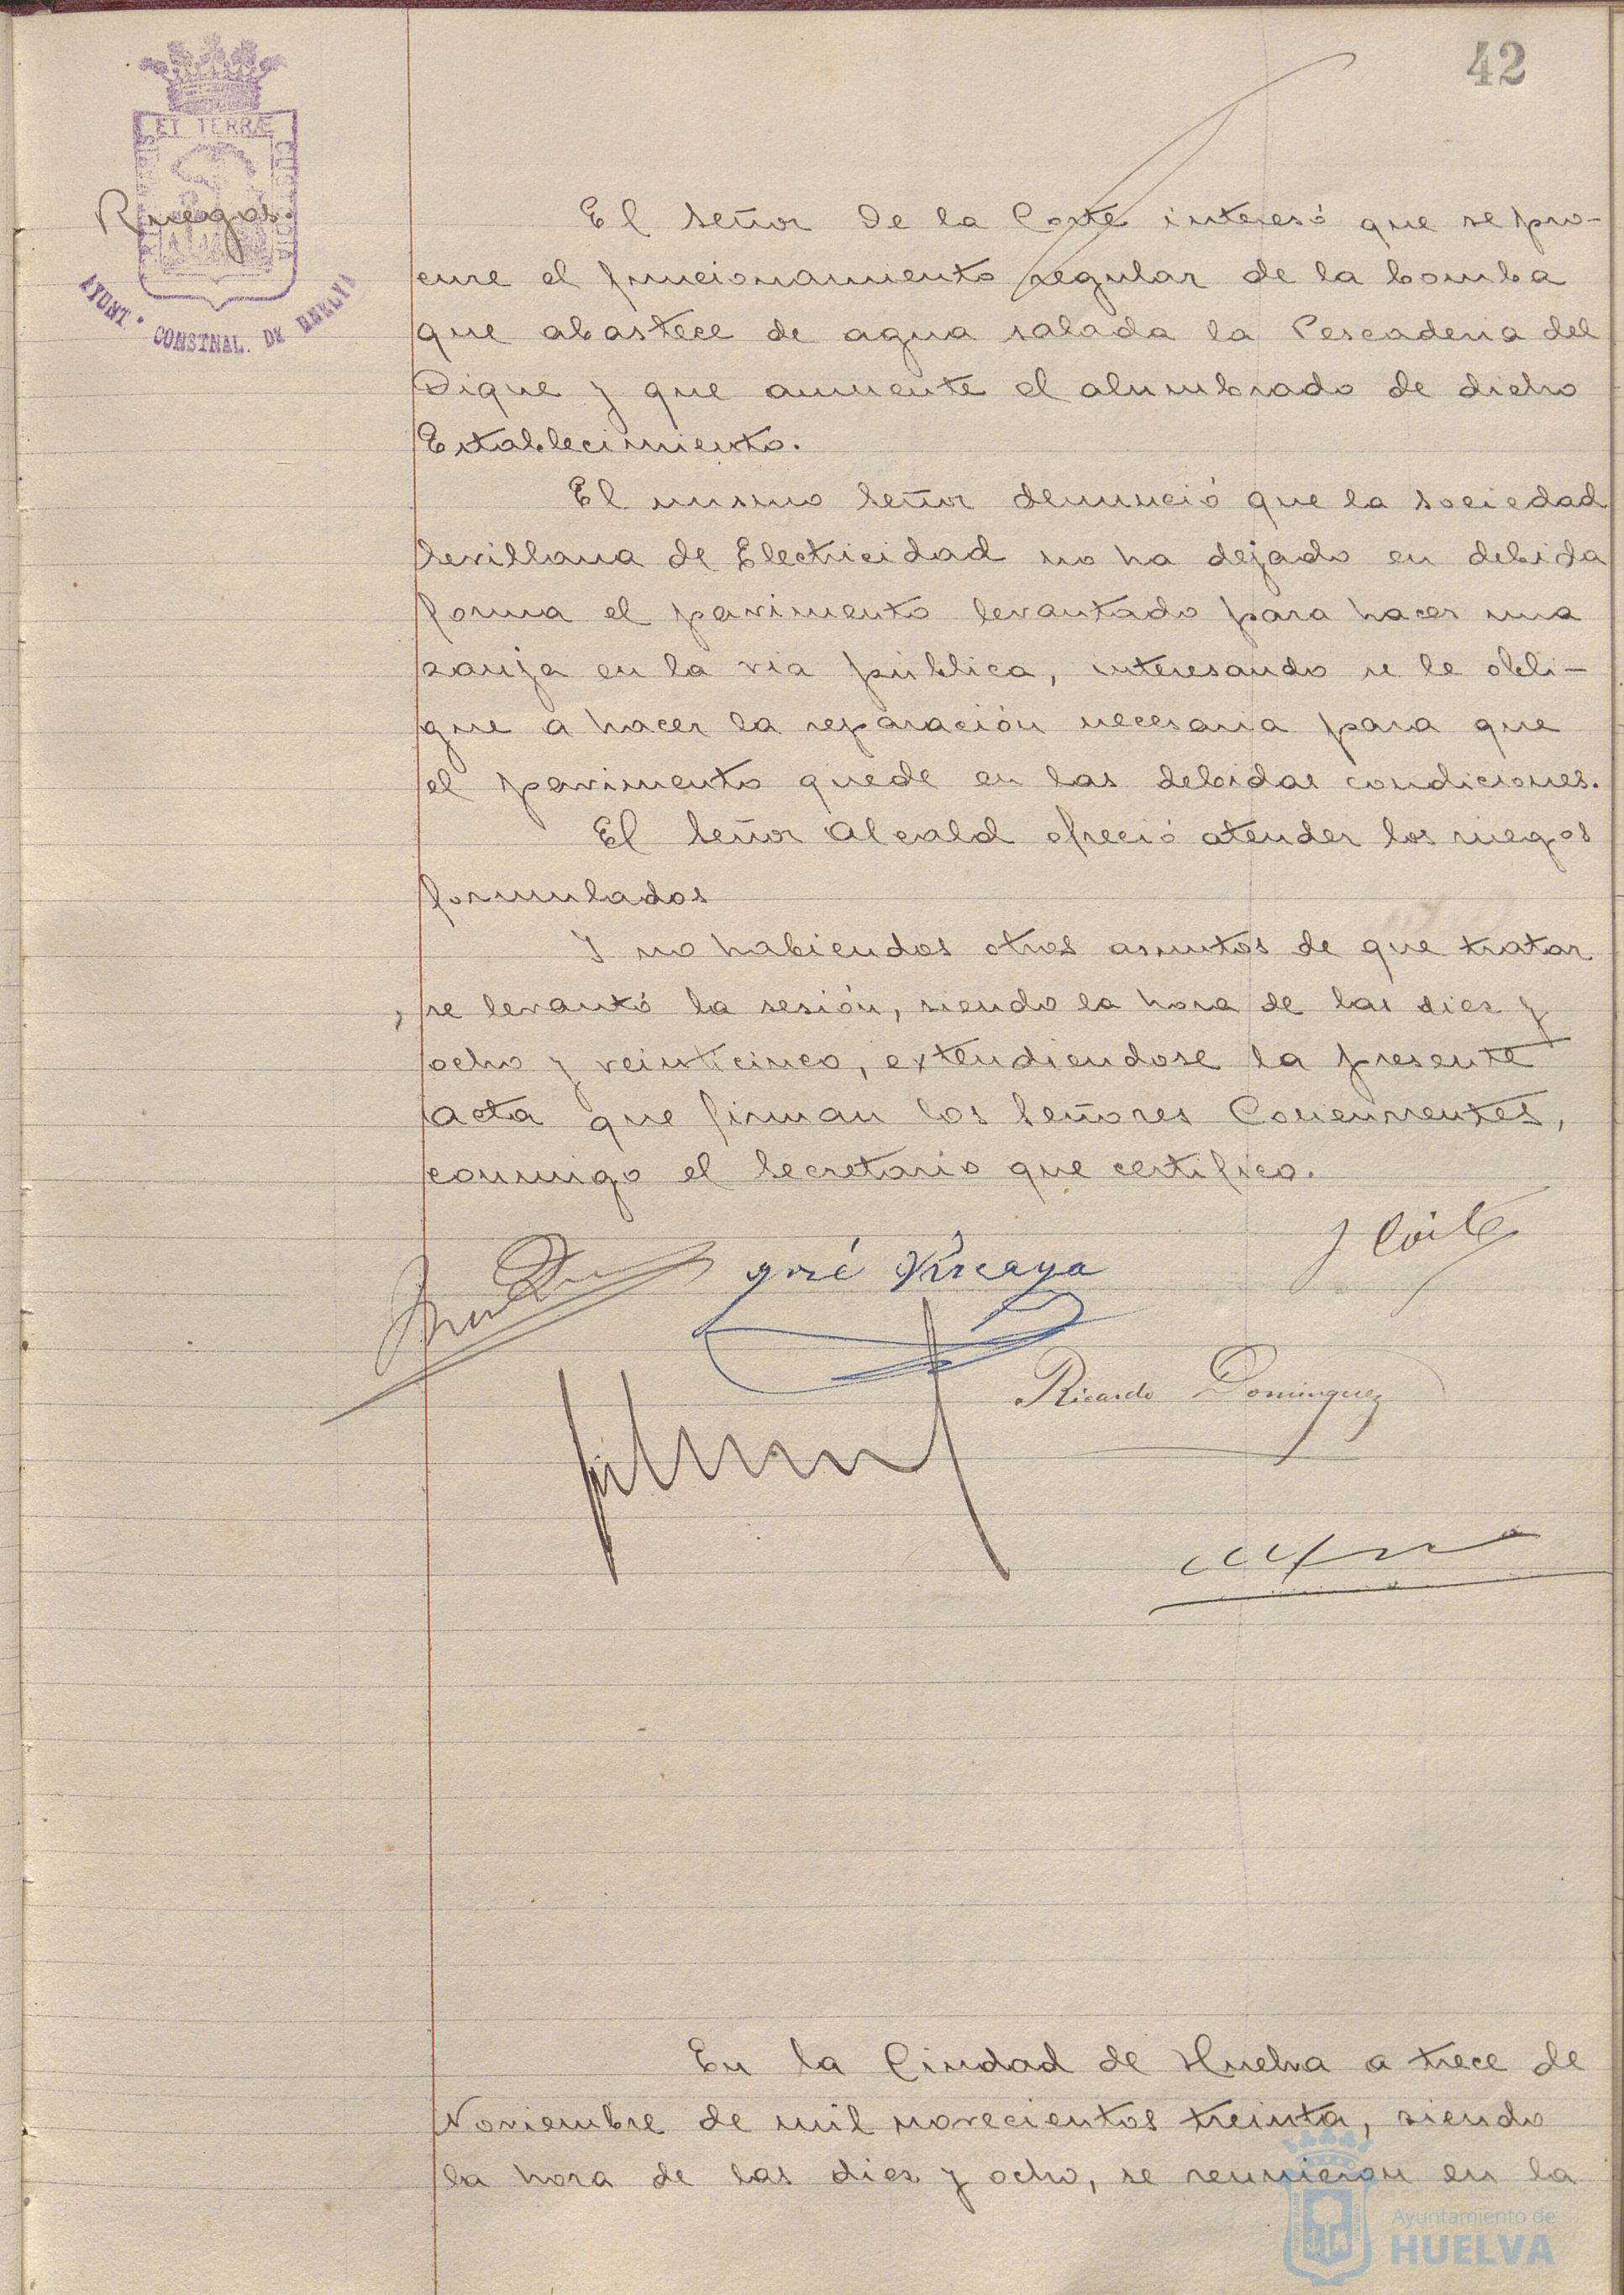 42
ET TERRÆ
AYUNT. CONSTNAL. DE HUELVA
Ruegos.
El Señor De la Corte interesó que se pro-
cure el funcionamiento regular de la bomba
que abastece de agua salada la Pescaderia del
Dique y que aumente el alumbrado de dicho
Establecimiento.
El mismo Señor denunció que la Sociedad
Sevillana de Electricidad no ha dejado en debida
forma el pavimento levantado para hacer una
zanja en la via pública, interesando se le obli-
gue a hacer la reparación necesaria para que
el pavimento quede en las debidas condiciones.
El Señor Alcald ofreció atender los ruegos
formulados
Y no habiendos otros asuntos de que tratar
se levantó la sesión, siendo la hora de las diez y
ocho y veinticinco, extendiendose la presente
acta que firman los Señores Concurrentes,
conmigo el Secretario que certifico.
José Vizcaya
J Corte
Ricardo Dominguez
En la Ciudad de Huelva a trece de
Noviembre de mil novecientos treinta, siendo
la hora de las diez y ocho, se reunieron en la
Ayuntamiento de
HUELVA